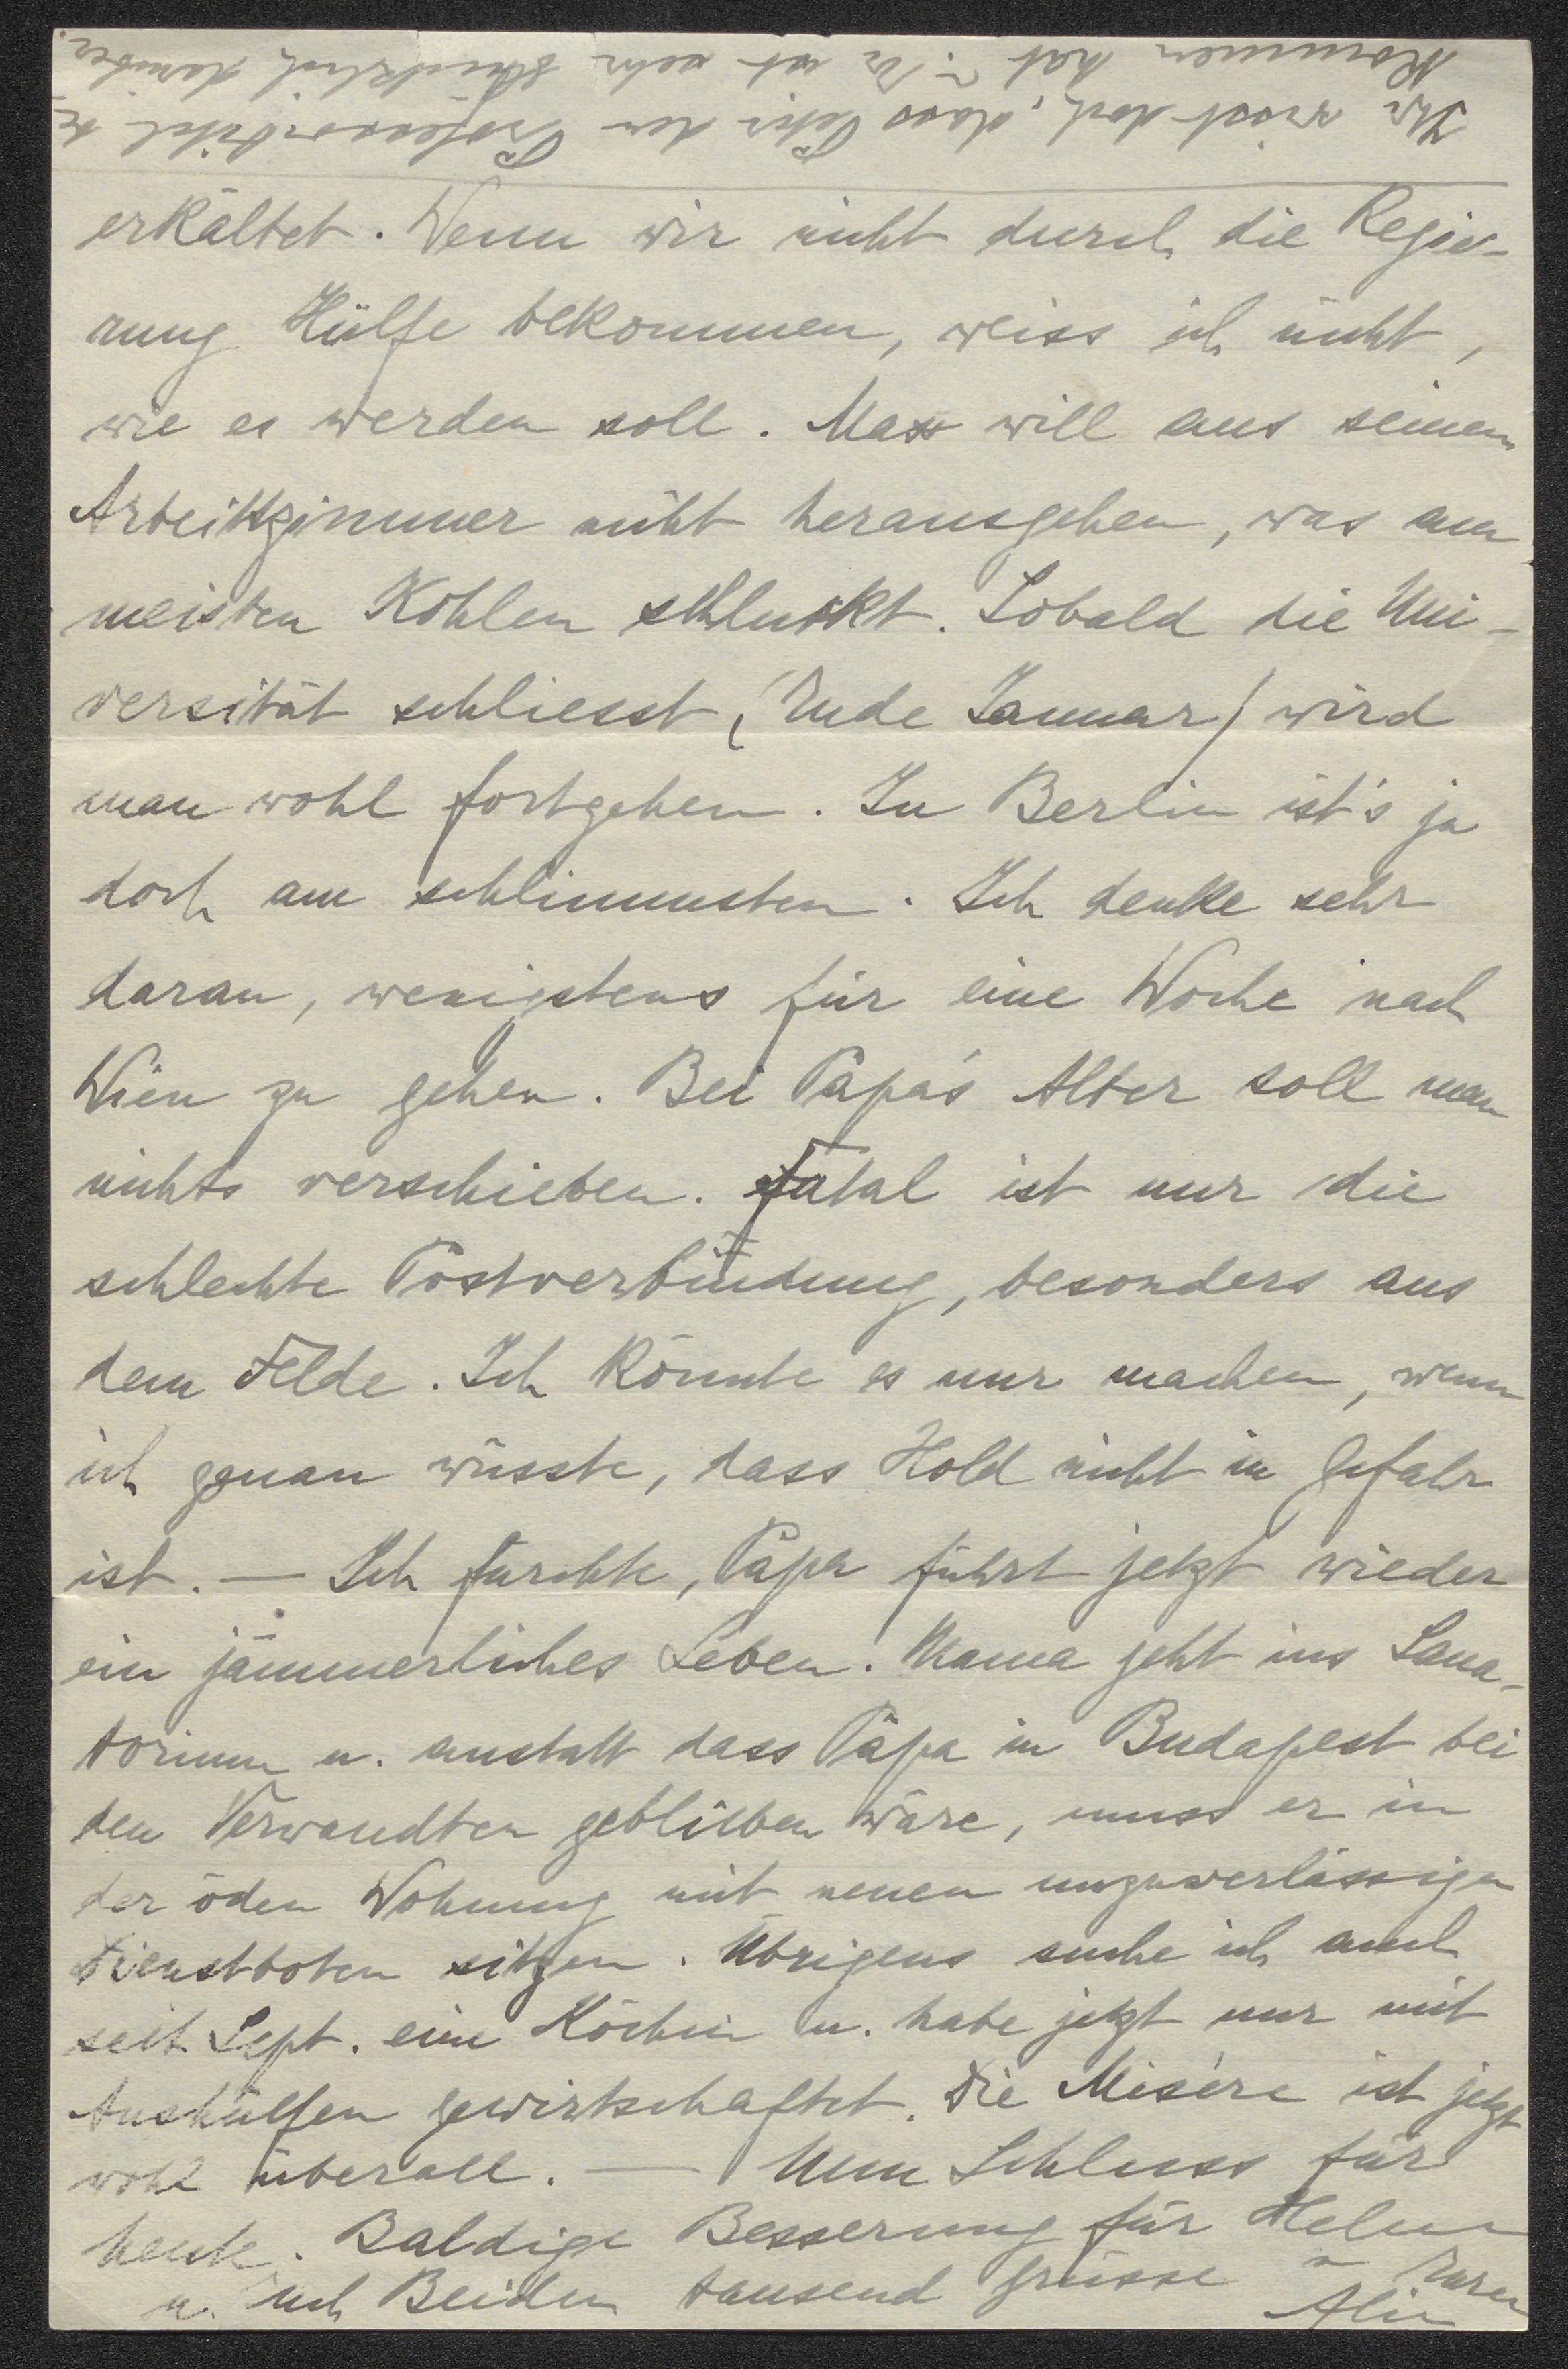 erkältet. Wenn wir nicht durch die Regie-
rung Hülfe bekommen, weiss ich nicht,
wie es werden soll. Max will aus seinem
Arbeitszimmer nicht herausgehen, was am
meisten Kohlen schluckt. Sobald die Uni-
versität schliesst, (Ende Januar) wird
man wohl fortgehen. In Berlin ist's ja
doch am schlimmsten. Ich denke sehr
daran, wenigstens für eine Woche nach
Wien zu gehen. Bei Papa's Alter soll man
nichts verschieben. Fatal ist nur die
schlechte Postverbindung, besonders aus
dem Felde. Ich könnte es nur machen, wenn
ich genau wüsste, dass Hold nicht in Gefahr
ist. — Ich fürchte, Papa führt jetzt wieder
ein jämmerliches Leben. Mama geht ins Sana-
torium u. anstatt dass Papa in Budapest bei
den Verwandten geblieben wäre, muss er in
der öden Wohnung mit neuen unzuverlässigen
Dienstboten sitzen. Übrigens suche ich auch
seit Sept. eine Köchin u. habe jetzt nur mit
Aushülfen gewirtschaftet. Die Misère ist jetzt
wohl überall. — Nun Schluss für
heute. Baldige Besserung für Helene
u. Euch Beiden tausend Grüsse v. Eurer
Alin
Ihr wisst doch, dass Peter den Professortitel be-
kommen hat? Er ist sehr glücklich darüber.